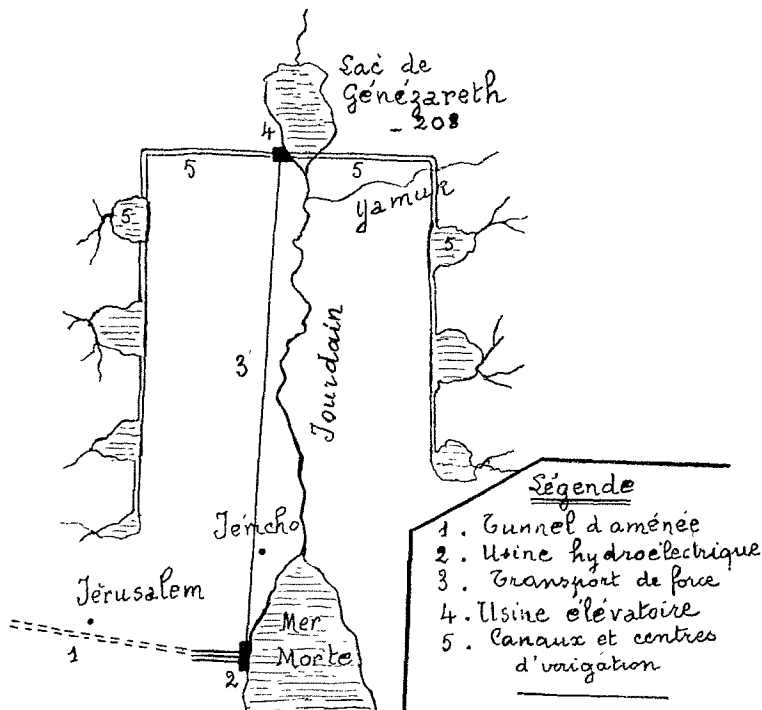 Lac de
Génézareth
- 208
4
5
5
Yamuk
5
5
3
Jourdain
Jéricho
Jérusalem
1
2
Mer
Morte
Légende
1. Tunnel d'aménée
2. Usine hydroélectrique
3. Transport de force
4. Usine élévatoire
5. Canaux et centres
d'irrigation